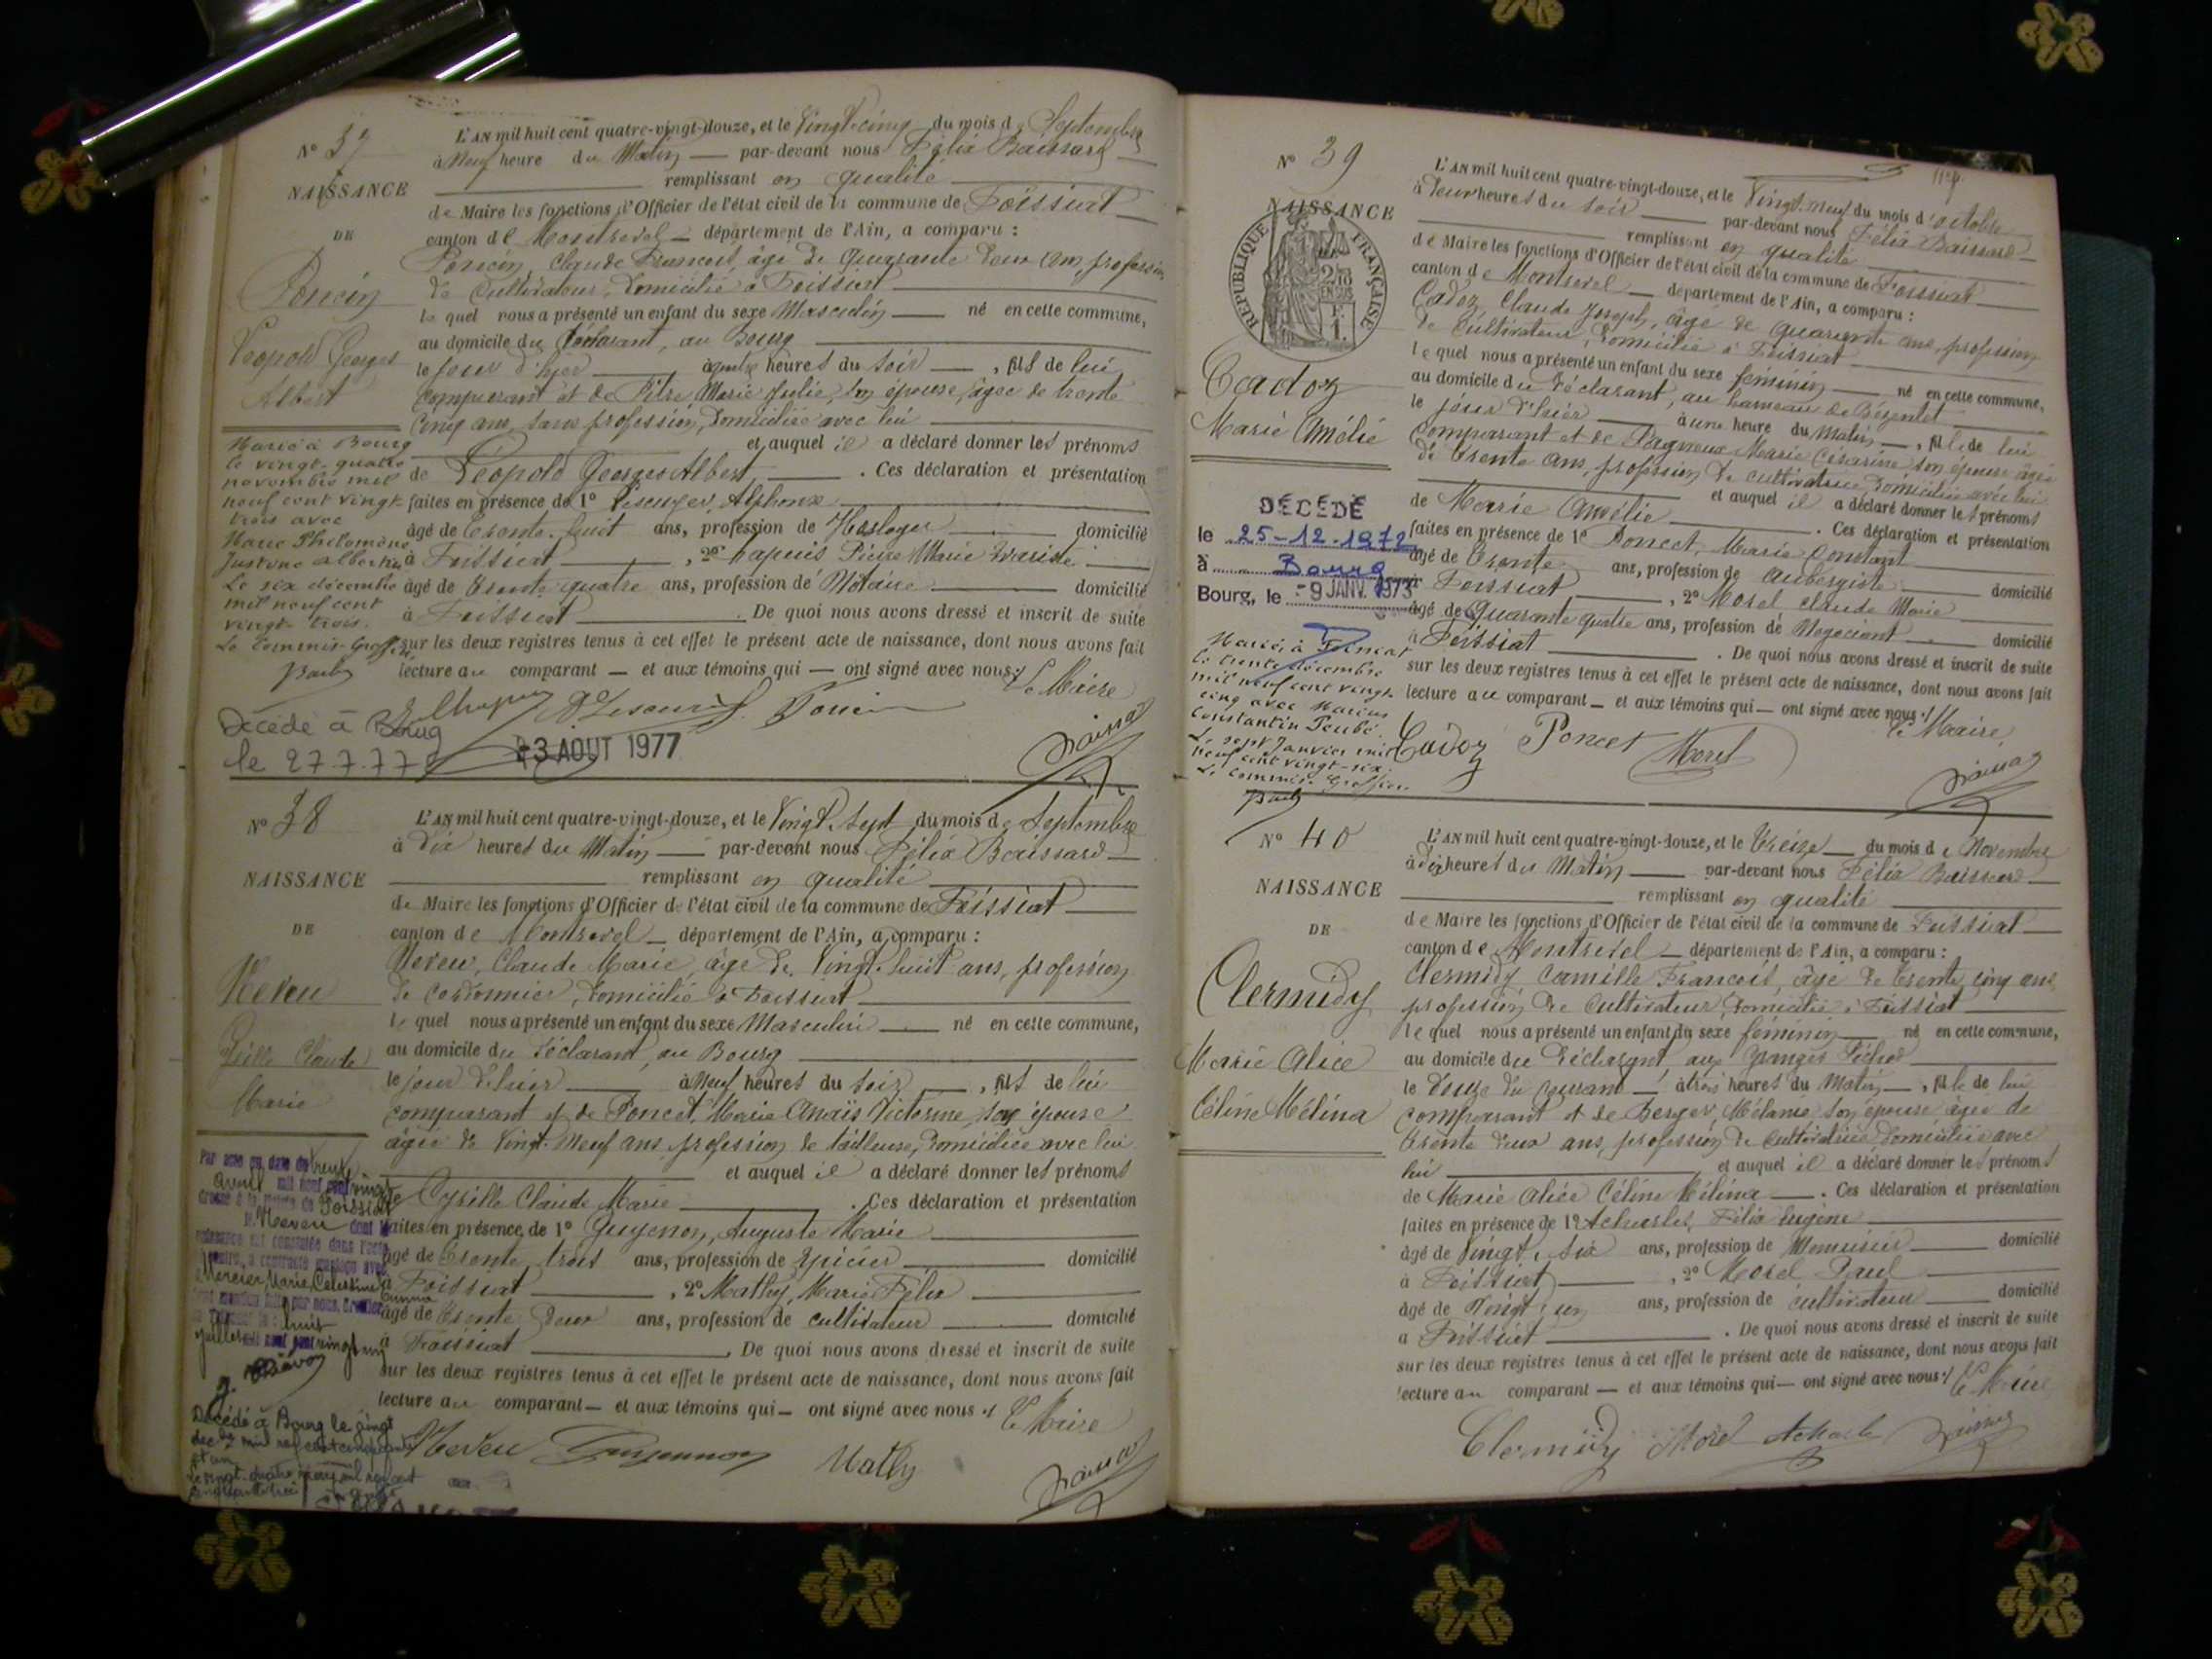 N° 37
NAISSANCE
DE
Poncin
Léopold Georges
Albert
L'AN mil huit cent quatre-vingt-douze, et le Vingt-cinq du mois de Septembre
à Neuf heure du Matin — par-devant nous Félix Baissard
remplissant en qualité
de Maire les fonctions d'Officier de l'état civil de la commune de Foissiat
canton de Montrevel — département de l'Ain, a comparu :
Poncin, Claude François, âgé de quarante deux ans, profession
de Cultivateur, domicilié à Foissiat
lequel nous a présenté un enfant du sexe Masculin — né en cette commune,
au domicile du déclarant, au Bourg
le jour d'hier — à heures du soir —, fils de lui
comparant et de Pitre Marie Julie, son épouse, âgée de trente
cinq ans, sans profession, domiciliée avec lui
et auquel il a déclaré donner les prénoms
de Léopold Georges Albert, — . Ces déclaration et présentation
faites en présence de 1° Alphonse
âgé de trente-huit ans, profession de Horloger — domicilié
à Foissiat —, 2° Chapuis Pierre Marie
âgé de trente-quatre ans, profession de Notaire — domicilié
à Foissiat — . De quoi nous avons dressé et inscrit de suite
sur les deux registres tenus à cet effet le présent acte de naissance, dont nous avons fait
lecture au comparant — et aux témoins qui — ont signé avec nous ./. Le Maire
Marié à Bourg
le vingt-quatre
novembre mil
neuf cent vingt
trois avec
Marie Philomène
Justine Albertine
Le six décembre
mil neuf cent
vingt-trois.
Le Commis-Greffier
Poncin
Baissard
Décédé à Bourg
le 27.7.77
-3 AOUT 1977
N° 38
NAISSANCE
DE
Neveu
Cyrille Claude
Marie
L'AN mil huit cent quatre-vingt-douze, et le Vingt-Sept du mois de Septembre
à Dix heures du Matin — par-devant nous Félix Baissard
remplissant en qualité
de Maire les fonctions d'Officier de l'état civil de la commune de Foissiat
canton de Montrevel — département de l'Ain, a comparu :
Neveu, Claude Marie, âgé de Vingt-huit ans, profession
de Cordonnier, domicilié à Foissiat
lequel nous a présenté un enfant du sexe Masculin — né en cette commune,
au domicile du déclarant, au Bourg
le jour d'hier — à Neuf heures du soir —, fils de lui
comparant et de Poncet, Marie Anaïs Victorine, son épouse
âgée de Vingt-Neuf ans, profession de tailleuse, domiciliée avec lui
et auquel il a déclaré donner les prénoms
de Cyrille Claude Marie — . Ces déclaration et présentation
faites en présence de 1° Guyennon, Auguste Marie
âgé de trente trois ans, profession de épicier — domicilié
à Foissiat —, 2° Mathy, Marie Félix
âgé de trente deux ans, profession de cultivateur — domicilié
à Foissiat — . De quoi nous avons dressé et inscrit de suite
sur les deux registres tenus à cet effet le présent acte de naissance, dont nous avons fait
lecture au comparant — et aux témoins qui — ont signé avec nous ./. Le Maire
Par acte en date du trente
avril mil neuf cent vingt
dressé à la Mairie de Foissiat
Neveu dont la
naissance est constatée dans l'acte
ci-contre, a contracté mariage avec
Mercier Marie Célestine
Emma
huit
juillet mil neuf cent vingt un
Décédé à Bourg le vingt
Neveu Guyennon Mathy
Baissard
N° 39
NAISSANCE
RÉPUBLIQUE FRANÇAISE
Cadoz
Marie Amélie
L'AN mil huit cent quatre-vingt-douze, et le Vingt-neuf du mois d'octobre
à deux heures du soir — par-devant nous Félix Baissard
remplissant en qualité
de Maire les fonctions d'Officier de l'état civil de la commune de Foissiat
canton de Montrevel — département de l'Ain, a comparu :
Cadoz, Claude Joseph, âgé de quarante ans, profession
de Cultivateur, domicilié à Foissiat
lequel nous a présenté un enfant du sexe féminin — né en cette commune,
au domicile du déclarant, au hameau de
le jour d'hier — à une heure du Matin —, fille de lui
comparant et de Pagneux Marie Césarine son épouse âgée
de trente ans, profession de cultivatrice domiciliée avec lui
et auquel il a déclaré donner les prénoms
de Marie Amélie — . Ces déclaration et présentation
faites en présence de 1° Poncet, Marie Constant
âgé de trente ans, profession de Aubergiste — domicilié
à Foissiat —, 2° Morel Claude Marie
âgé de quarante quatre ans, profession de Négociant — domicilié
à Foissiat — . De quoi nous avons dressé et inscrit de suite
sur les deux registres tenus à cet effet le présent acte de naissance, dont nous avons fait
lecture au comparant — et aux témoins qui — ont signé avec nous ./. Le Maire
DÉCÉDÉ
le 25-12-1972
à Bourg
Bourg, le -9 JANV. 1973
Mariée à Foissiat
le trente décembre
mil neuf cent vingt
cinq avec Marius
Constantin
Le sept Janvier mil
neuf cent vingt-six.
Le Commis Greffier
Cadoz Poncet Morel
Baissard
N° 40
NAISSANCE
DE
Clermidy
Marie Alice
Céline Mélina
L'AN mil huit cent quatre-vingt-douze, et le treize — du mois de Novembre
à dix heures du Matin — par-devant nous Félix Baissard
remplissant en qualité
de Maire les fonctions d'Officier de l'état civil de la commune de Foissiat
canton de Montrevel — département de l'Ain, a comparu :
Clermidy Camille François, âgé de trente cinq ans
profession de Cultivateur, domicilié à Foissiat
lequel nous a présenté un enfant du sexe féminin — né en cette commune,
au domicile du déclarant, aux Granges
le douze du courant — à trois heures du Matin —, fille de lui
comparant et de Berger, Mélanie son épouse âgée de
trente deux ans, profession de Cultivatrice domiciliée avec
lui — et auquel il a déclaré donner les prénoms
de Marie Alice Céline Mélina — . Ces déclaration et présentation
faites en présence de 1° Félix Eugène
âgé de vingt six ans, profession de Menuisier — domicilié
à Foissiat —, 2° Morel Paul
âgé de Vingt un ans, profession de cultivateur — domicilié
à Foissiat — . De quoi nous avons dressé et inscrit de suite
sur les deux registres tenus à cet effet le présent acte de naissance, dont nous avons fait
lecture au comparant — et aux témoins qui — ont signé avec nous ./. Le Maire
Clermidy Morel
Baissard